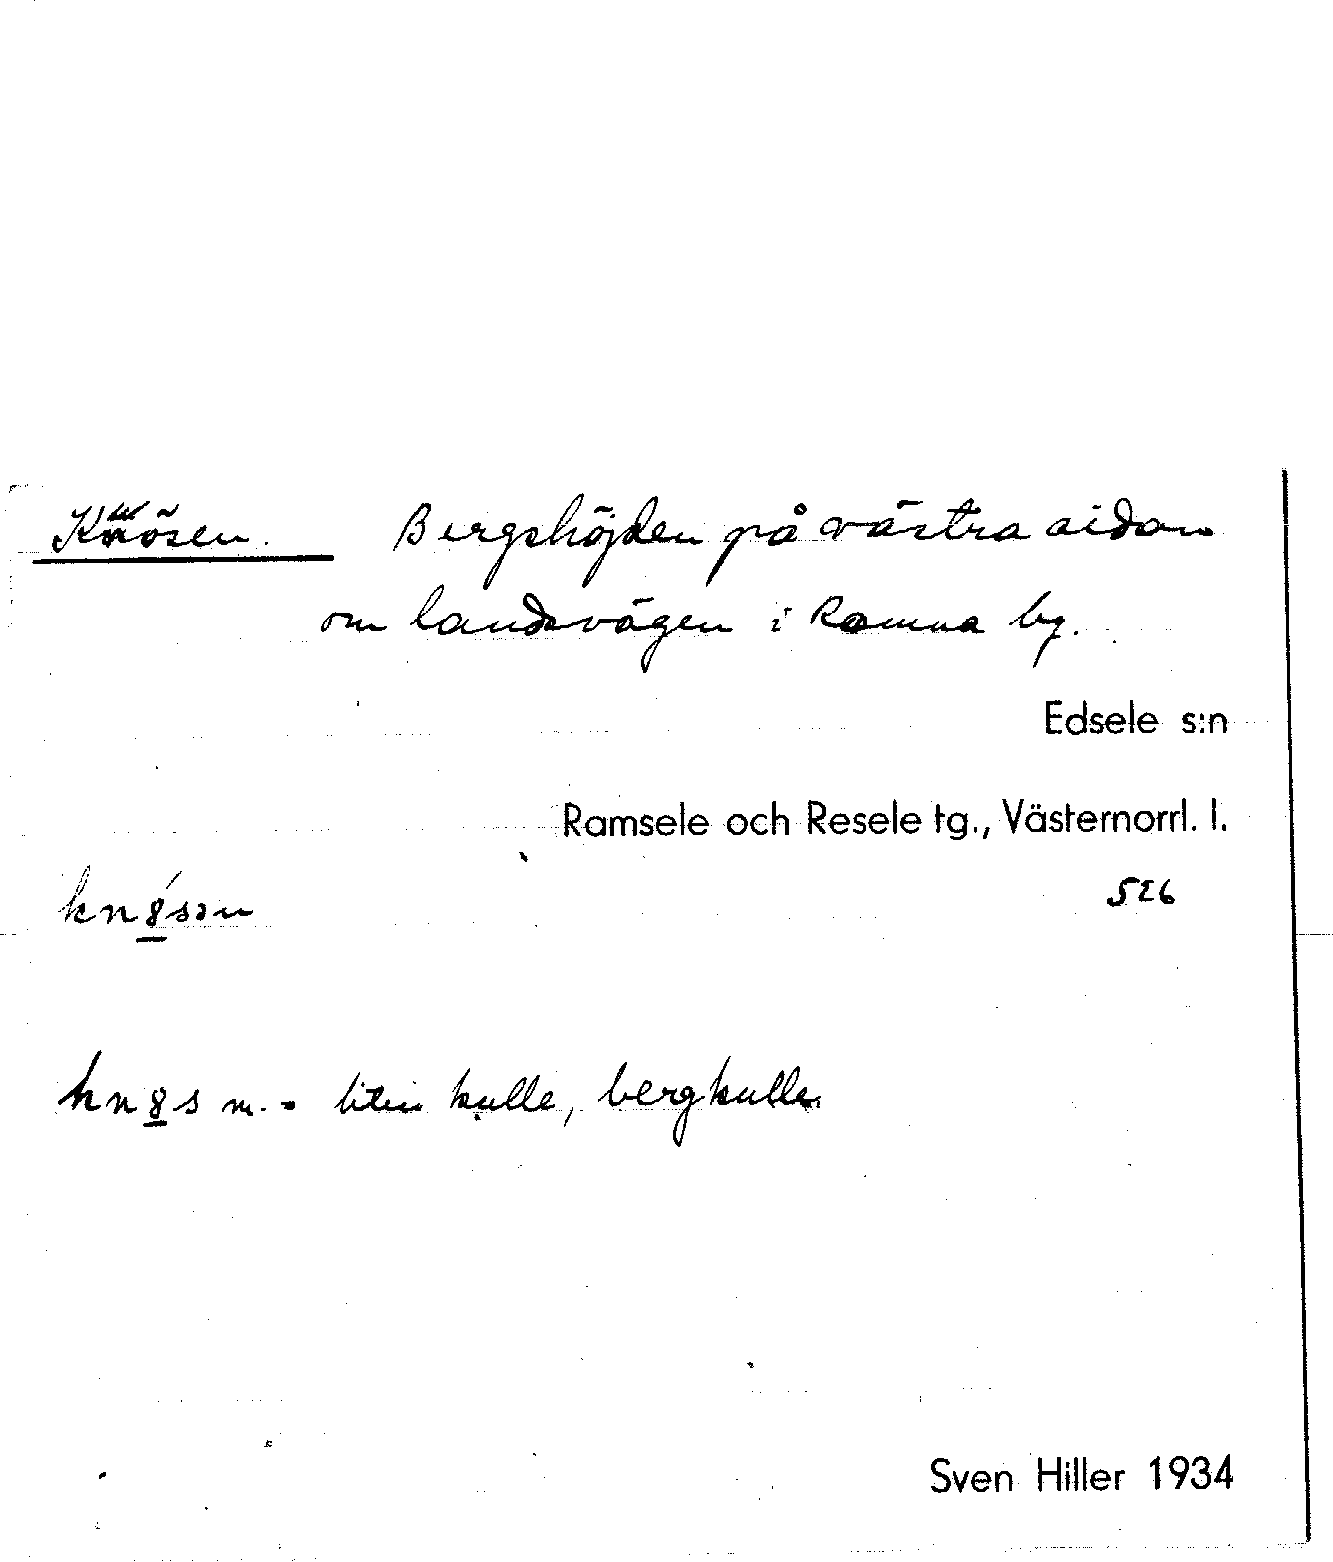 Knösen. Bergshöjden på västra sidan
om landsvägen i Ramna by.
Edsele s:n
Ramsele och Resele tg., Västernorrl. l.
526
kn8́sən
kn8s m. = liten kulle, bergkulle.
Sven Hiller 1934